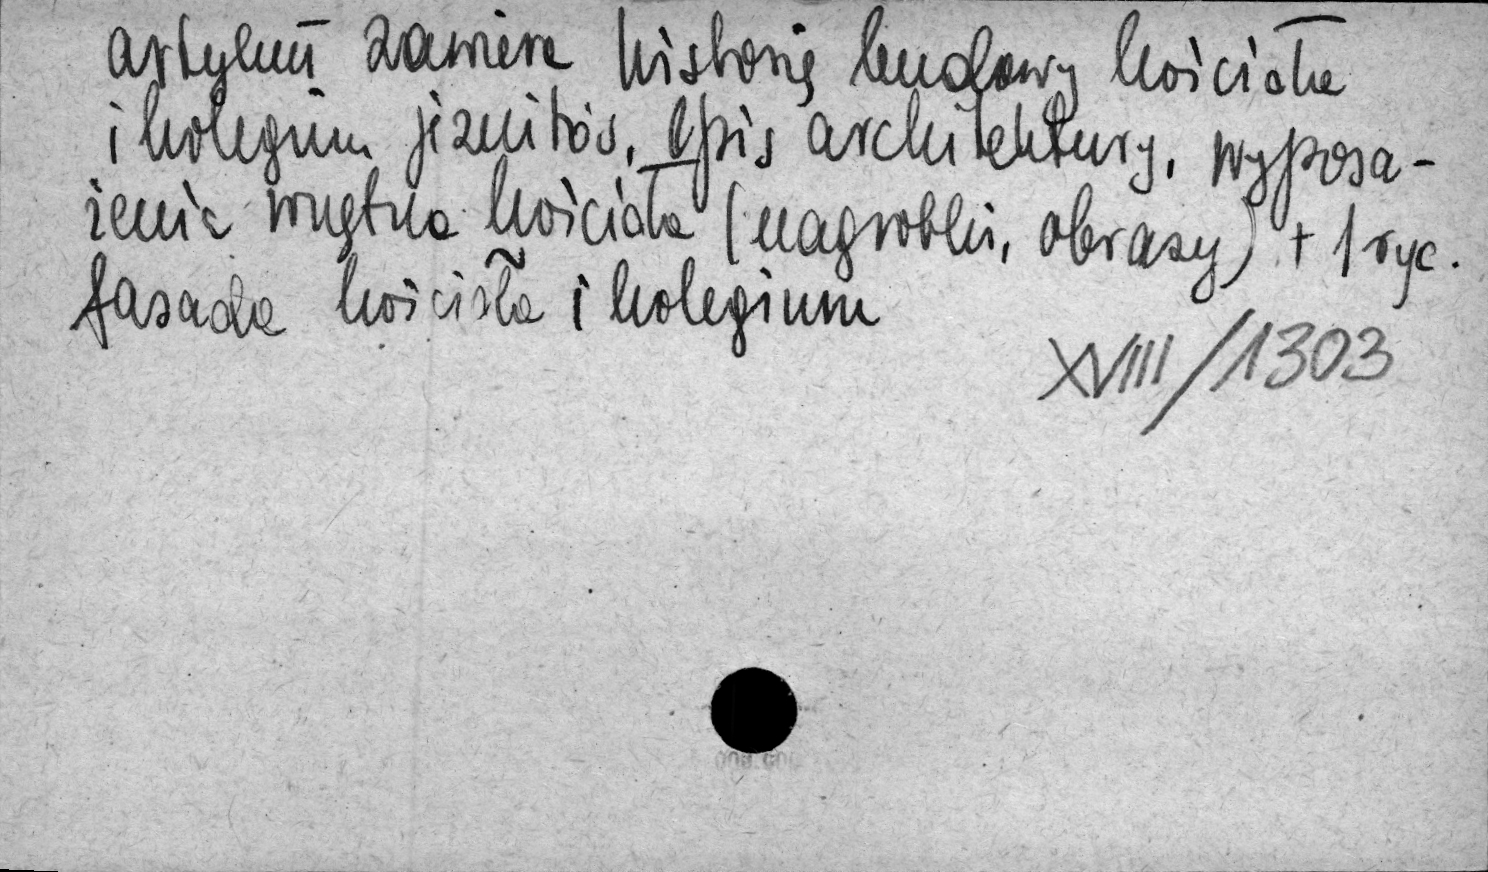 artykuł zawiera historię budowy kościoła
i kolegium jezuitów, opis architektury, wyposa-
żenie wnętrza kościoła (nagrobki, obrazy) + 1 ryc.
fasada kościoła i kolegium
XVIII/1303